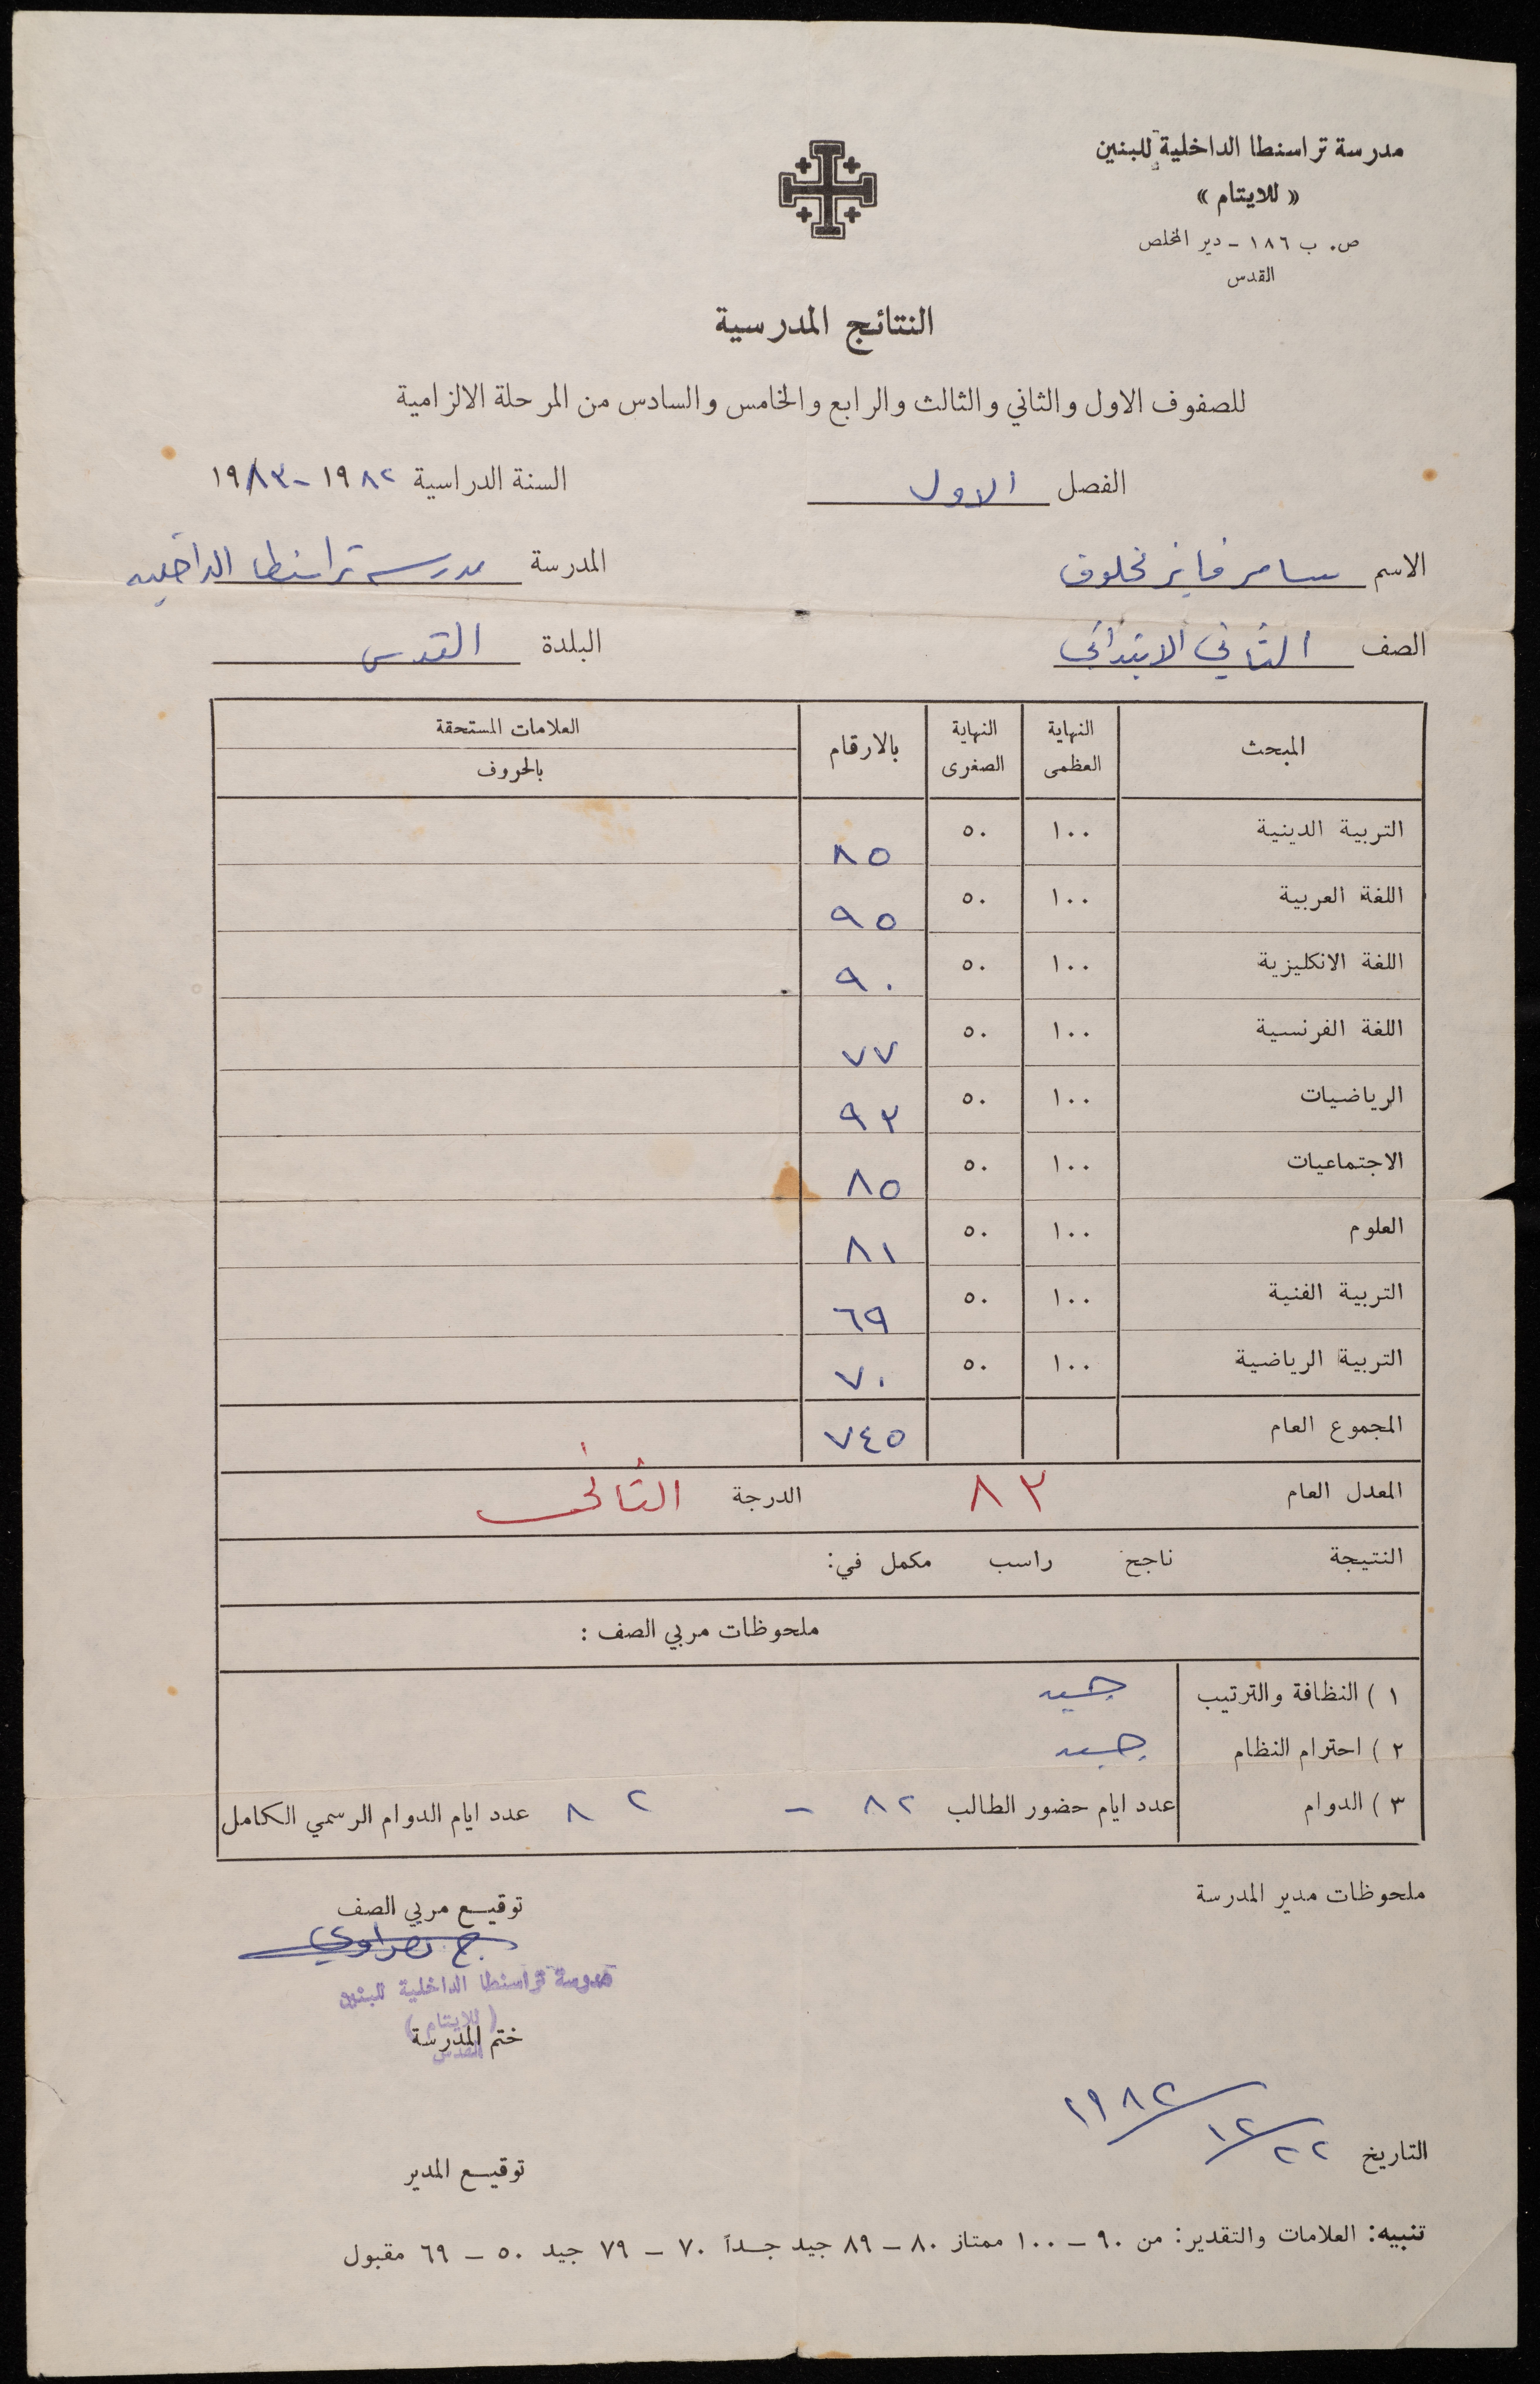 مدرسة تراسنطا الداخلية للبنين
« للايتام »
ص. ب ١٨٦ - دير المخلص
القدس
النتائج المدرسية
للصفوف الاول والثاني والثالث والرابع والخامس والسادس من المرحلة الالزامية
الفصل الاول السنة الدراسية ١٩٨٢ - ١٩٨٣
الاسم سامر فايز مخلوف المدرسة مدرسة تراسنطا الداخليه
الصف الثاني الابتدائي البلدة القدس
المبحث النهاية العظمى النهاية الصغرى بالارقام العلامات المستحقة بالحروف
التربية الدينية ١٠٠ ٥٠ ٨٥
اللغة العربية ١٠٠ ٥٠ ٩٥
اللغة الانكليزية ١٠٠ ٥٠ ٩٠
اللغة الفرنسية ١٠٠ ٥٠ ٧٧
الرياضيات ١٠٠ ٥٠ ٩٣
الاجتماعيات ١٠٠ ٥٠ ٨٥
العلوم ١٠٠ ٥٠ ٨١
التربية الفنية ١٠٠ ٥٠ ٦٩
التربية الرياضية ١٠٠ ٥٠ ٧٠
المجموع العام ٧٤٥
المعدل العام ٨٣ الدرجة الثاني
النتيجة ناجح راسب مكمل في:
ملحوظات مربي الصف :
١ ) النظافة والترتيب جيد
٢ ) احترام النظام جيد
٣ ) الدوام عدد ايام حضور الطالب ٨٢ - ٨٢ عدد ايام الدوام الرسمي الكامل
ملحوظات مدير المدرسة توقيع مربي الصف
مدرسة تراسنطا الداخلية للبنين
(للايتام)
القدس
ختم المدرسة
التاريخ ٢٢/١٢/١٩٨٢
توقيع المدير
تنبيه: العلامات والتقدير: من ٩٠ - ١٠٠ ممتاز ٨٠ - ٨٩ جيد جداً ٧٠ - ٧٩ جيد ٥٠ - ٦٩ مقبول